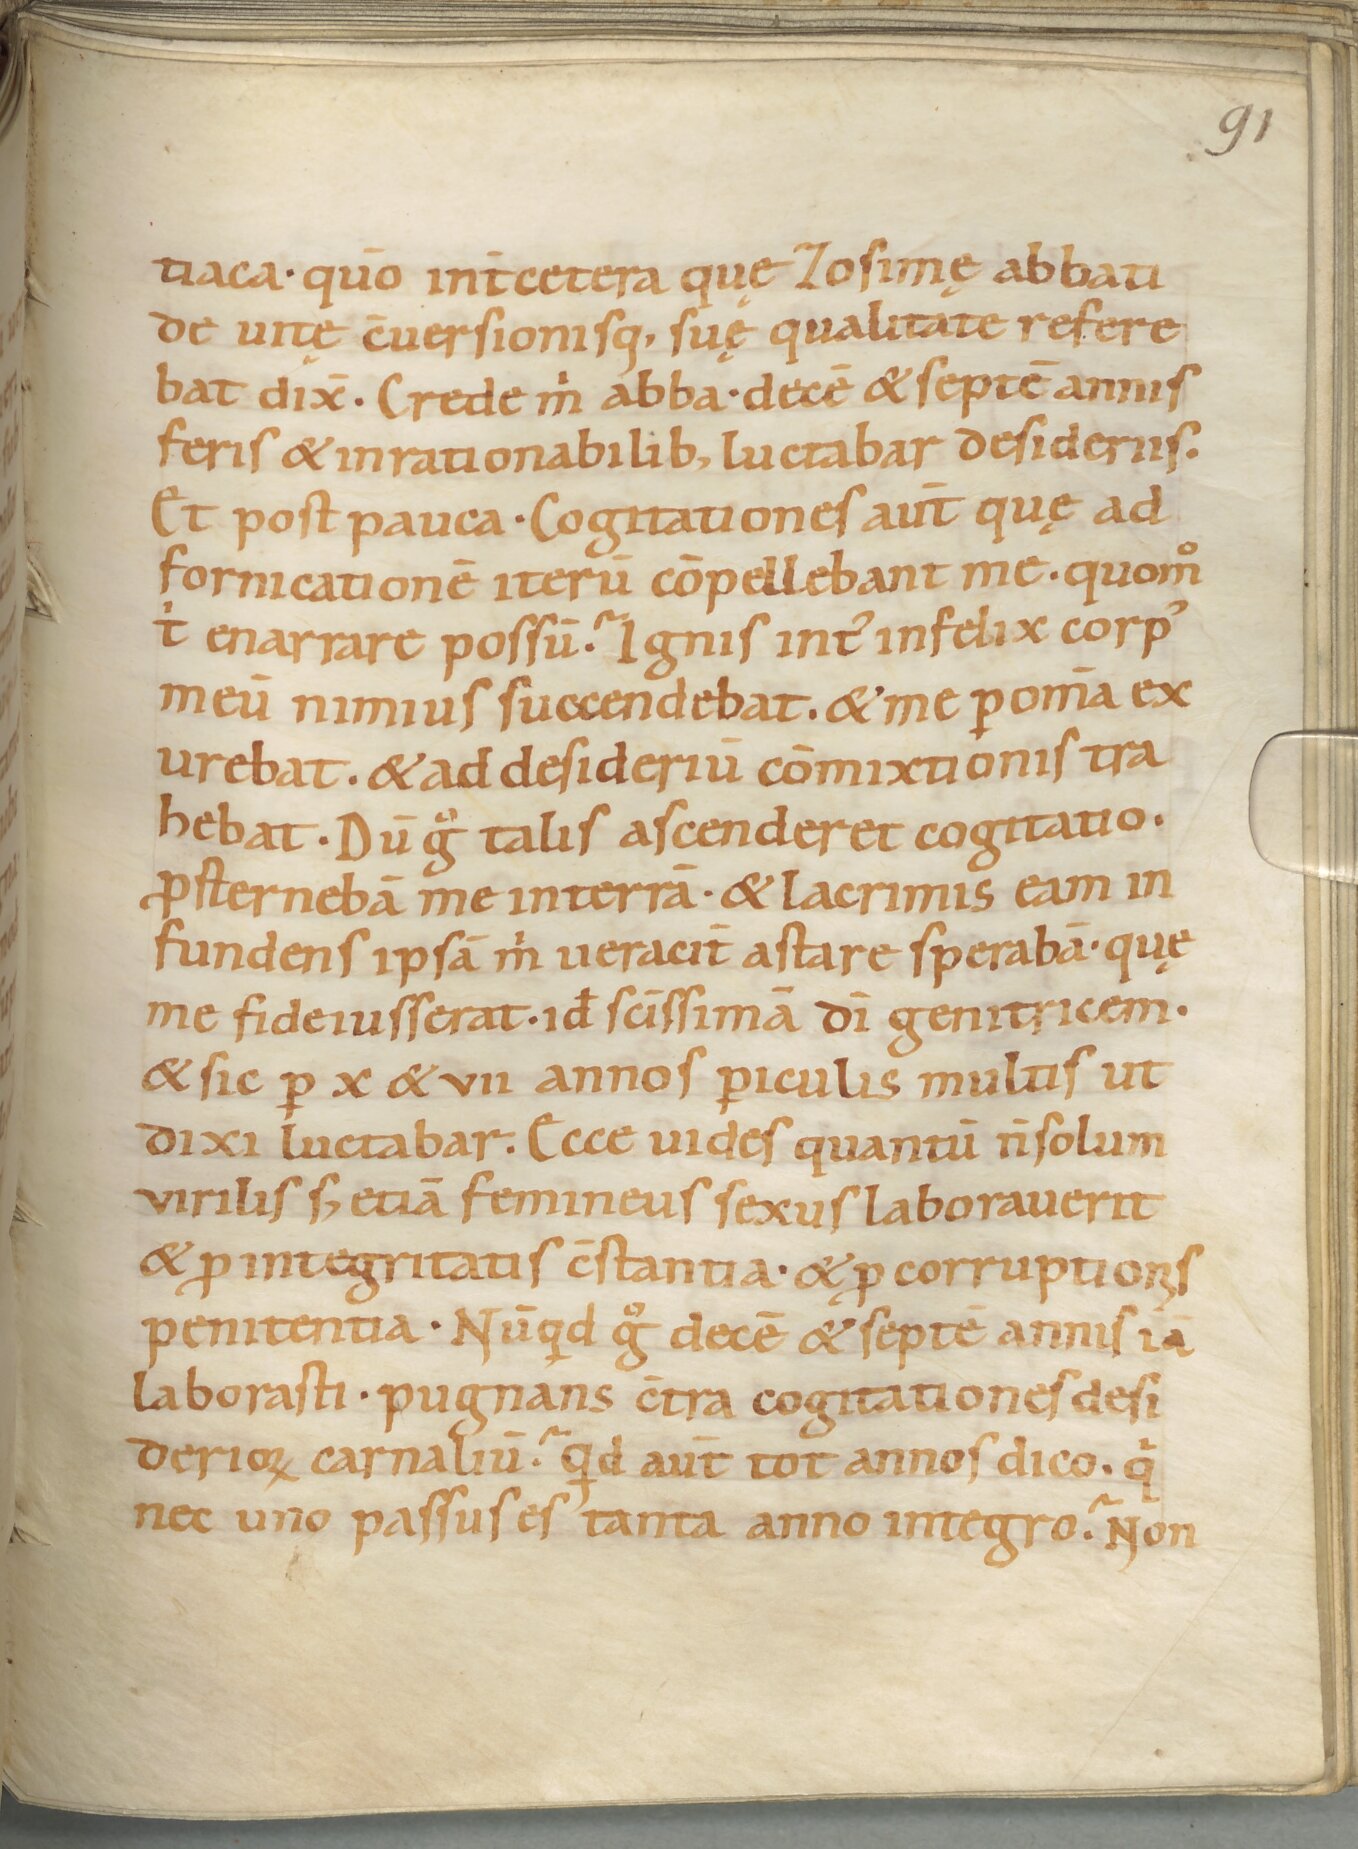 91
tiaca· quō int̄cetera quę Zosimę abbati
de uitę c̄uersionisq; suę qualitate refere
bat dix̄. Crede m̓ abba· decē & septē annis
feris & inrationabilib; luctabar desideriis.
Et post pauca· Cogitationes aut̄ quę ad
fornicationē iterū cōpellebant me· quom̊
t̓ enarrare possū? Ignis int᷎ infelix corp᷒
meū nimius succendebat. & me ꝑ om̄a ex
urebat. & ad desideriū cōmixtionis tra
hebat· Dū g̊ talis ascenderet cogitatio.
ꝓsternebā me interrā· & lacrimis eam in
fundens ipsā m̓ ueracit̄ astare sperabā· quę
me fideiusserat· id̄ sc̄issimā dī genitricem.
& sic ꝑ x & vii annos ꝑiculis multis ut
dixi luctabar. Ecce uides quantū n̄ solum
virilis s; etiā femineus sexus laborauerit
& ꝓ integritatis c̄stantia· & ꝓ corruptionis
penitentia· Nūqd g̊ decē & septē annis iā
laborasti· pugnans c̄tra cogitationes desi
derioꝝ carnaliū? qd aut̄ tot annos dico· q̓
nec uno passus es tanta anno integro? Non